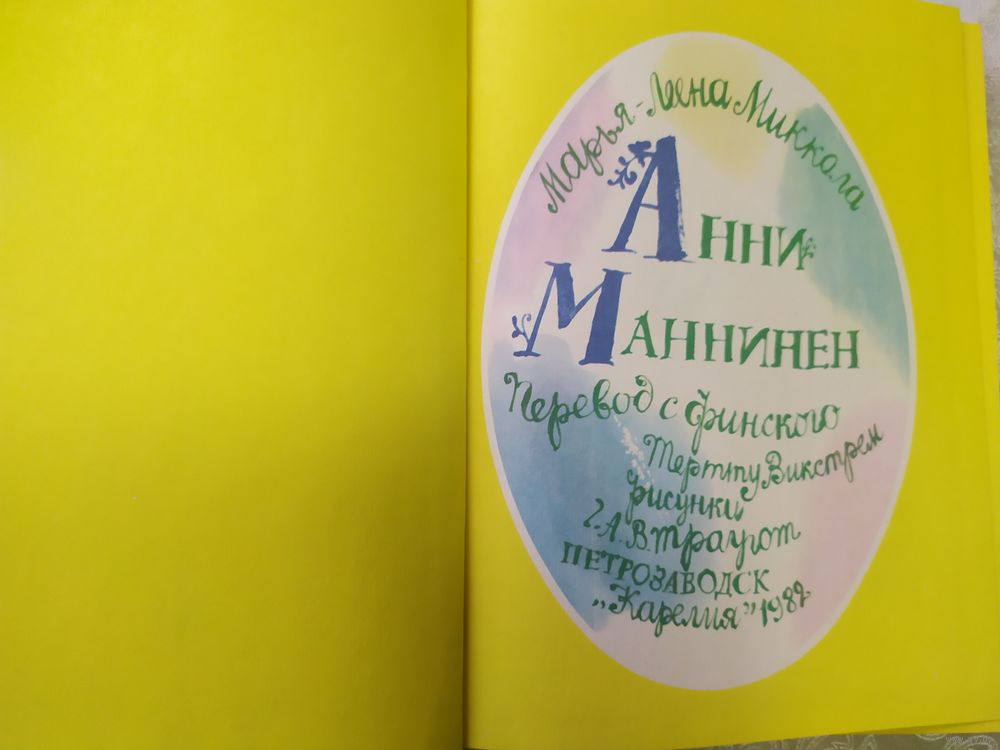 Марья-Леена Миккола
Анни
Маннинен
Перевод с финского
Терттту Викстрем
рисунки
Г.А.В.Траугот
ПЕТРОЗАВОДСК
„Карелия” 1982